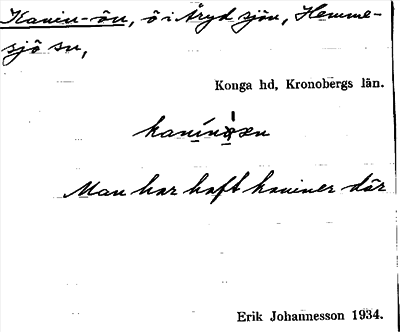 Kanin-ön, ö i Åryd sjön, Hemme-
sjö sn,
Konga hd, Kronobergs län.
Man har haft kaniner där
Erik Johannesson 1934.